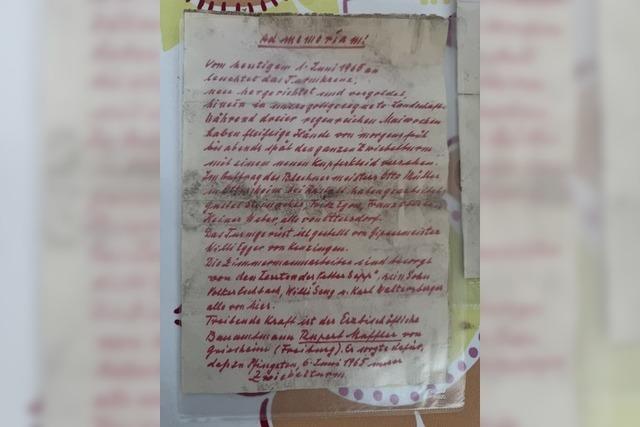 Ad memoriam!
Vom heutigen 1. Juni 1965 an
leuchtet das Turmkreuz,
neu hergerichtet und vergoldet,
hinein in unsere gottgesegnete Landschaft.
Während dreier regenreichen Maiwochen
haben fleißige Hände von morgens früh
bis abends spät den ganzen Zwiebelturm
mit einem neuen Kupferkleid versehen.
Im Auftrag des Blechnermeisters Otto Müller
in bei Rastatt haben gearbeitet
Fritz Egon, Franz
Reiner Weber, alle von Ottersdorf.
Das Turmgerüst ist gestellt von Gipsermeister
Willi Egger von Kenzingen.
Die Zimmermannarbeiten sind besorgt
von den "Sapp", sein Sohn
Volker Willi Seng u. Karl
alle von hier.
Treibende Kraft ist der Erzbischöfliche
Bauamtmann Rupert von
Griesheim (Freiburg). Er sorgte dafür,
daß zu Pfingsten, 6. Juni 1965 unser
Zwiebelturm.